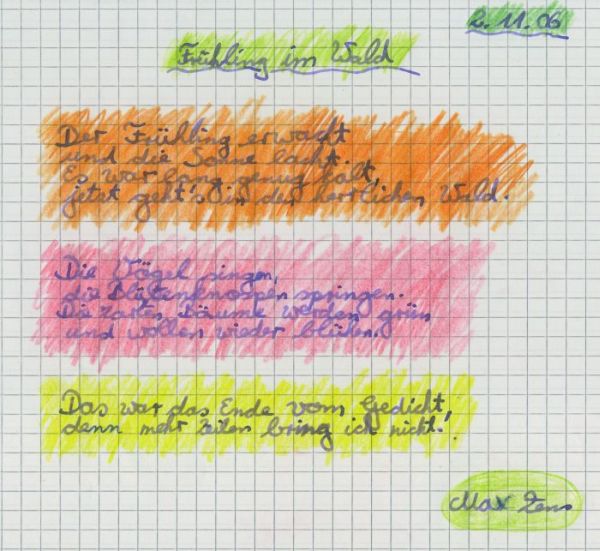 2.11.06
Frühling im Wald
Der Frühling erwacht
und die Sonne lacht.
Es war lang genug kalt,
jetzt geht's in den herrlichen Wald.
Die Vögel singen,
die Blütenknospen springen.
Die zarten Bäume werden grün
und wollen wieder blühen.
Das war das Ende vom Gedicht,
denn mehr zeilen bring ich nicht!
Max Zens